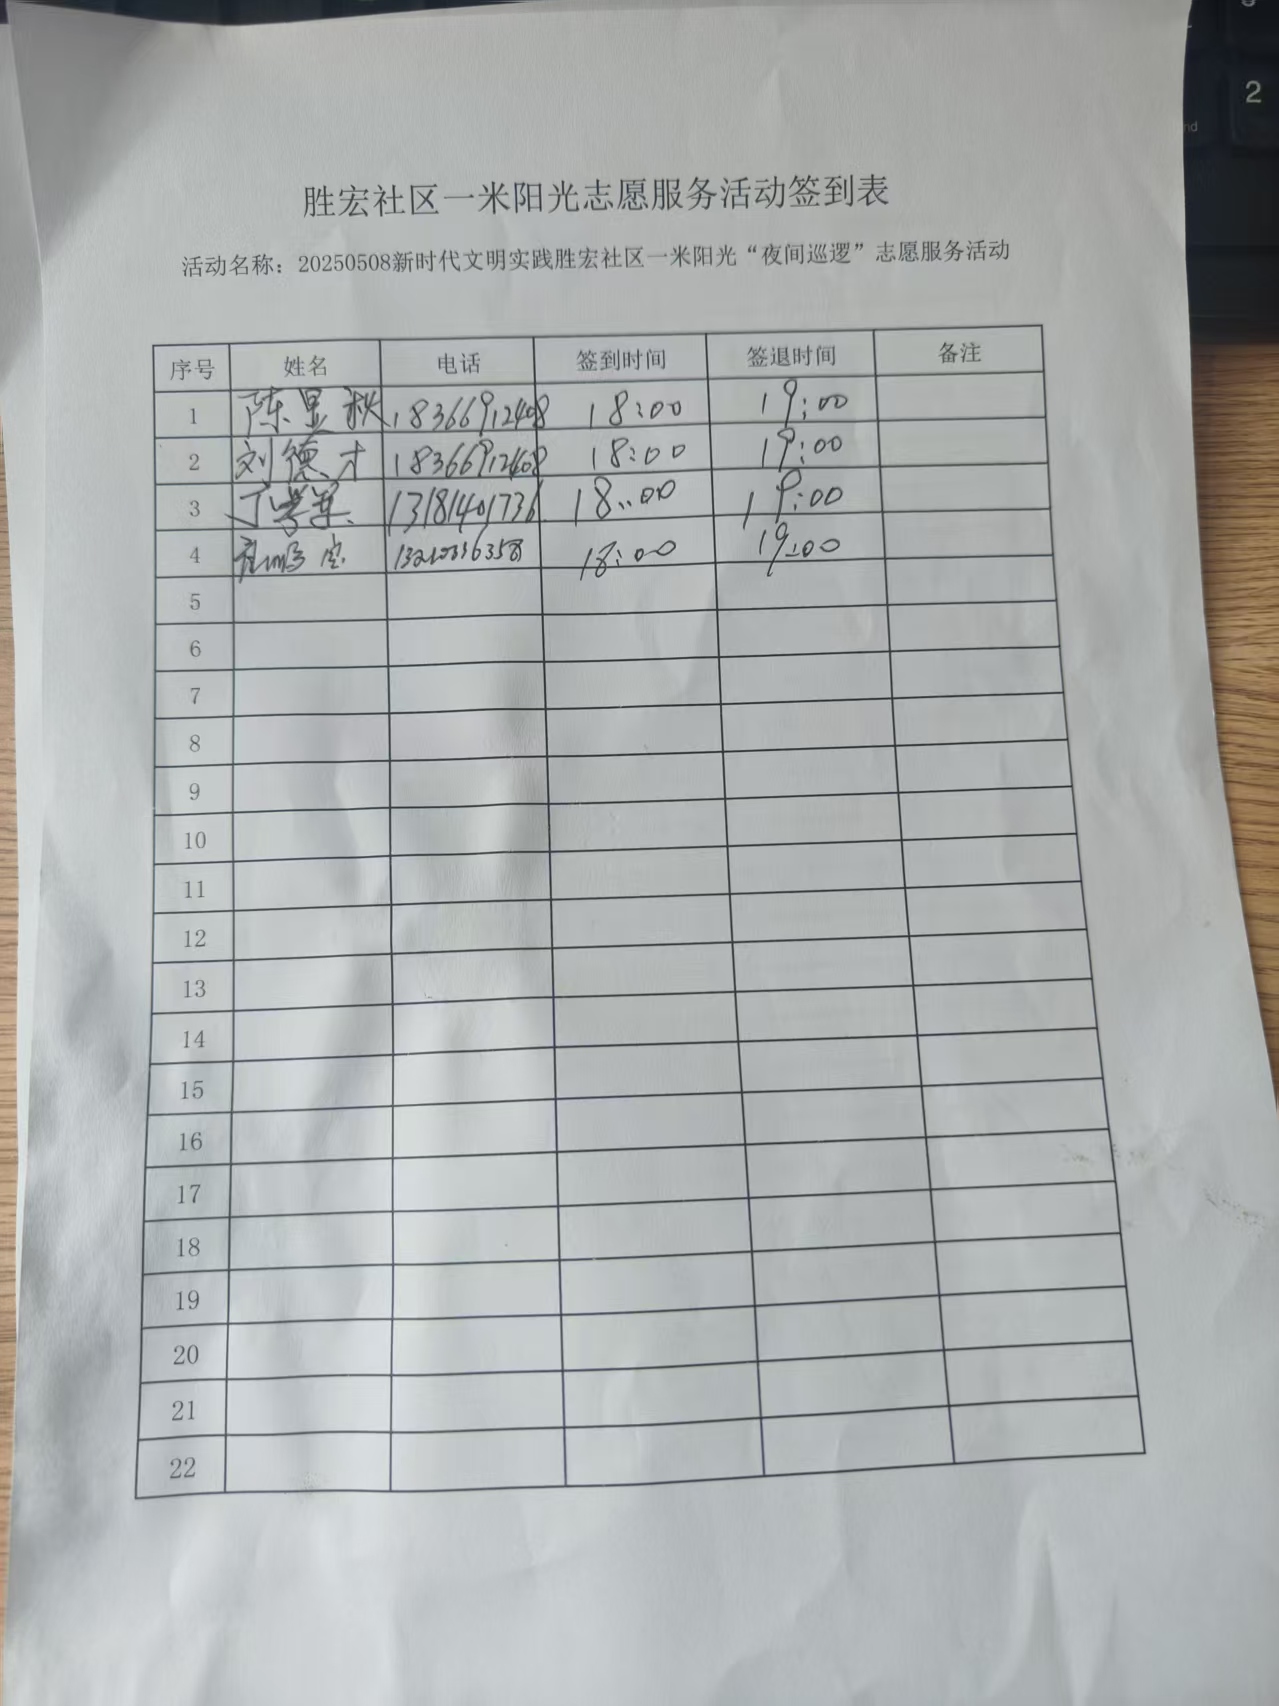 胜宏社区一米阳光志愿服务活动签到表
活动名称：20250508新时代文明实践胜宏社区一米阳光“夜间巡逻”志愿服务活动
序号 姓名 电话 签到时间 签退时间 备注
1 陈显秋 18366912408 18:00 19:00
2 刘德才 18366912408 18:00 19:00
3 丁 13181401736 18:00 19:00
4 18:00 19:00
5
6
7
8
9
10
11
12
13
14
15
16
17
18
19
20
21
22
2